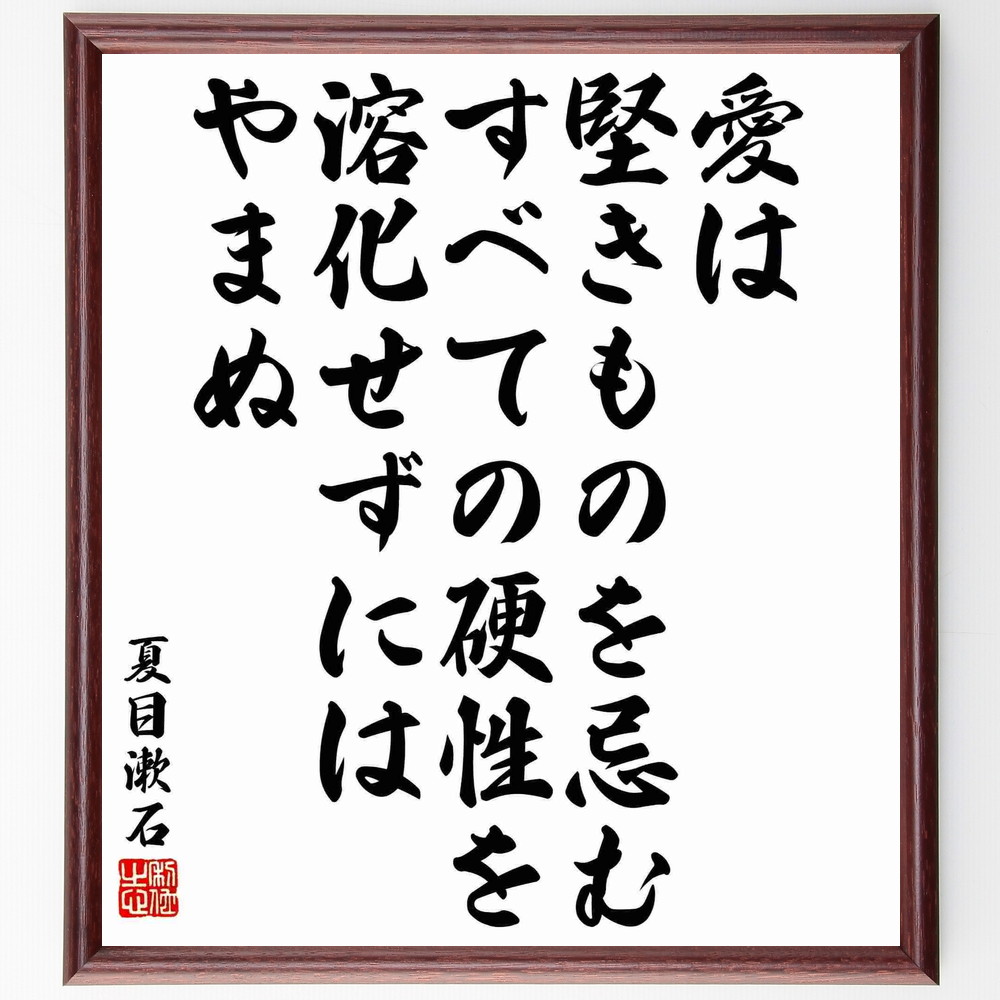 愛は
堅きものを忌む
すべての硬性を
溶化せずには
やまぬ
夏目漱石